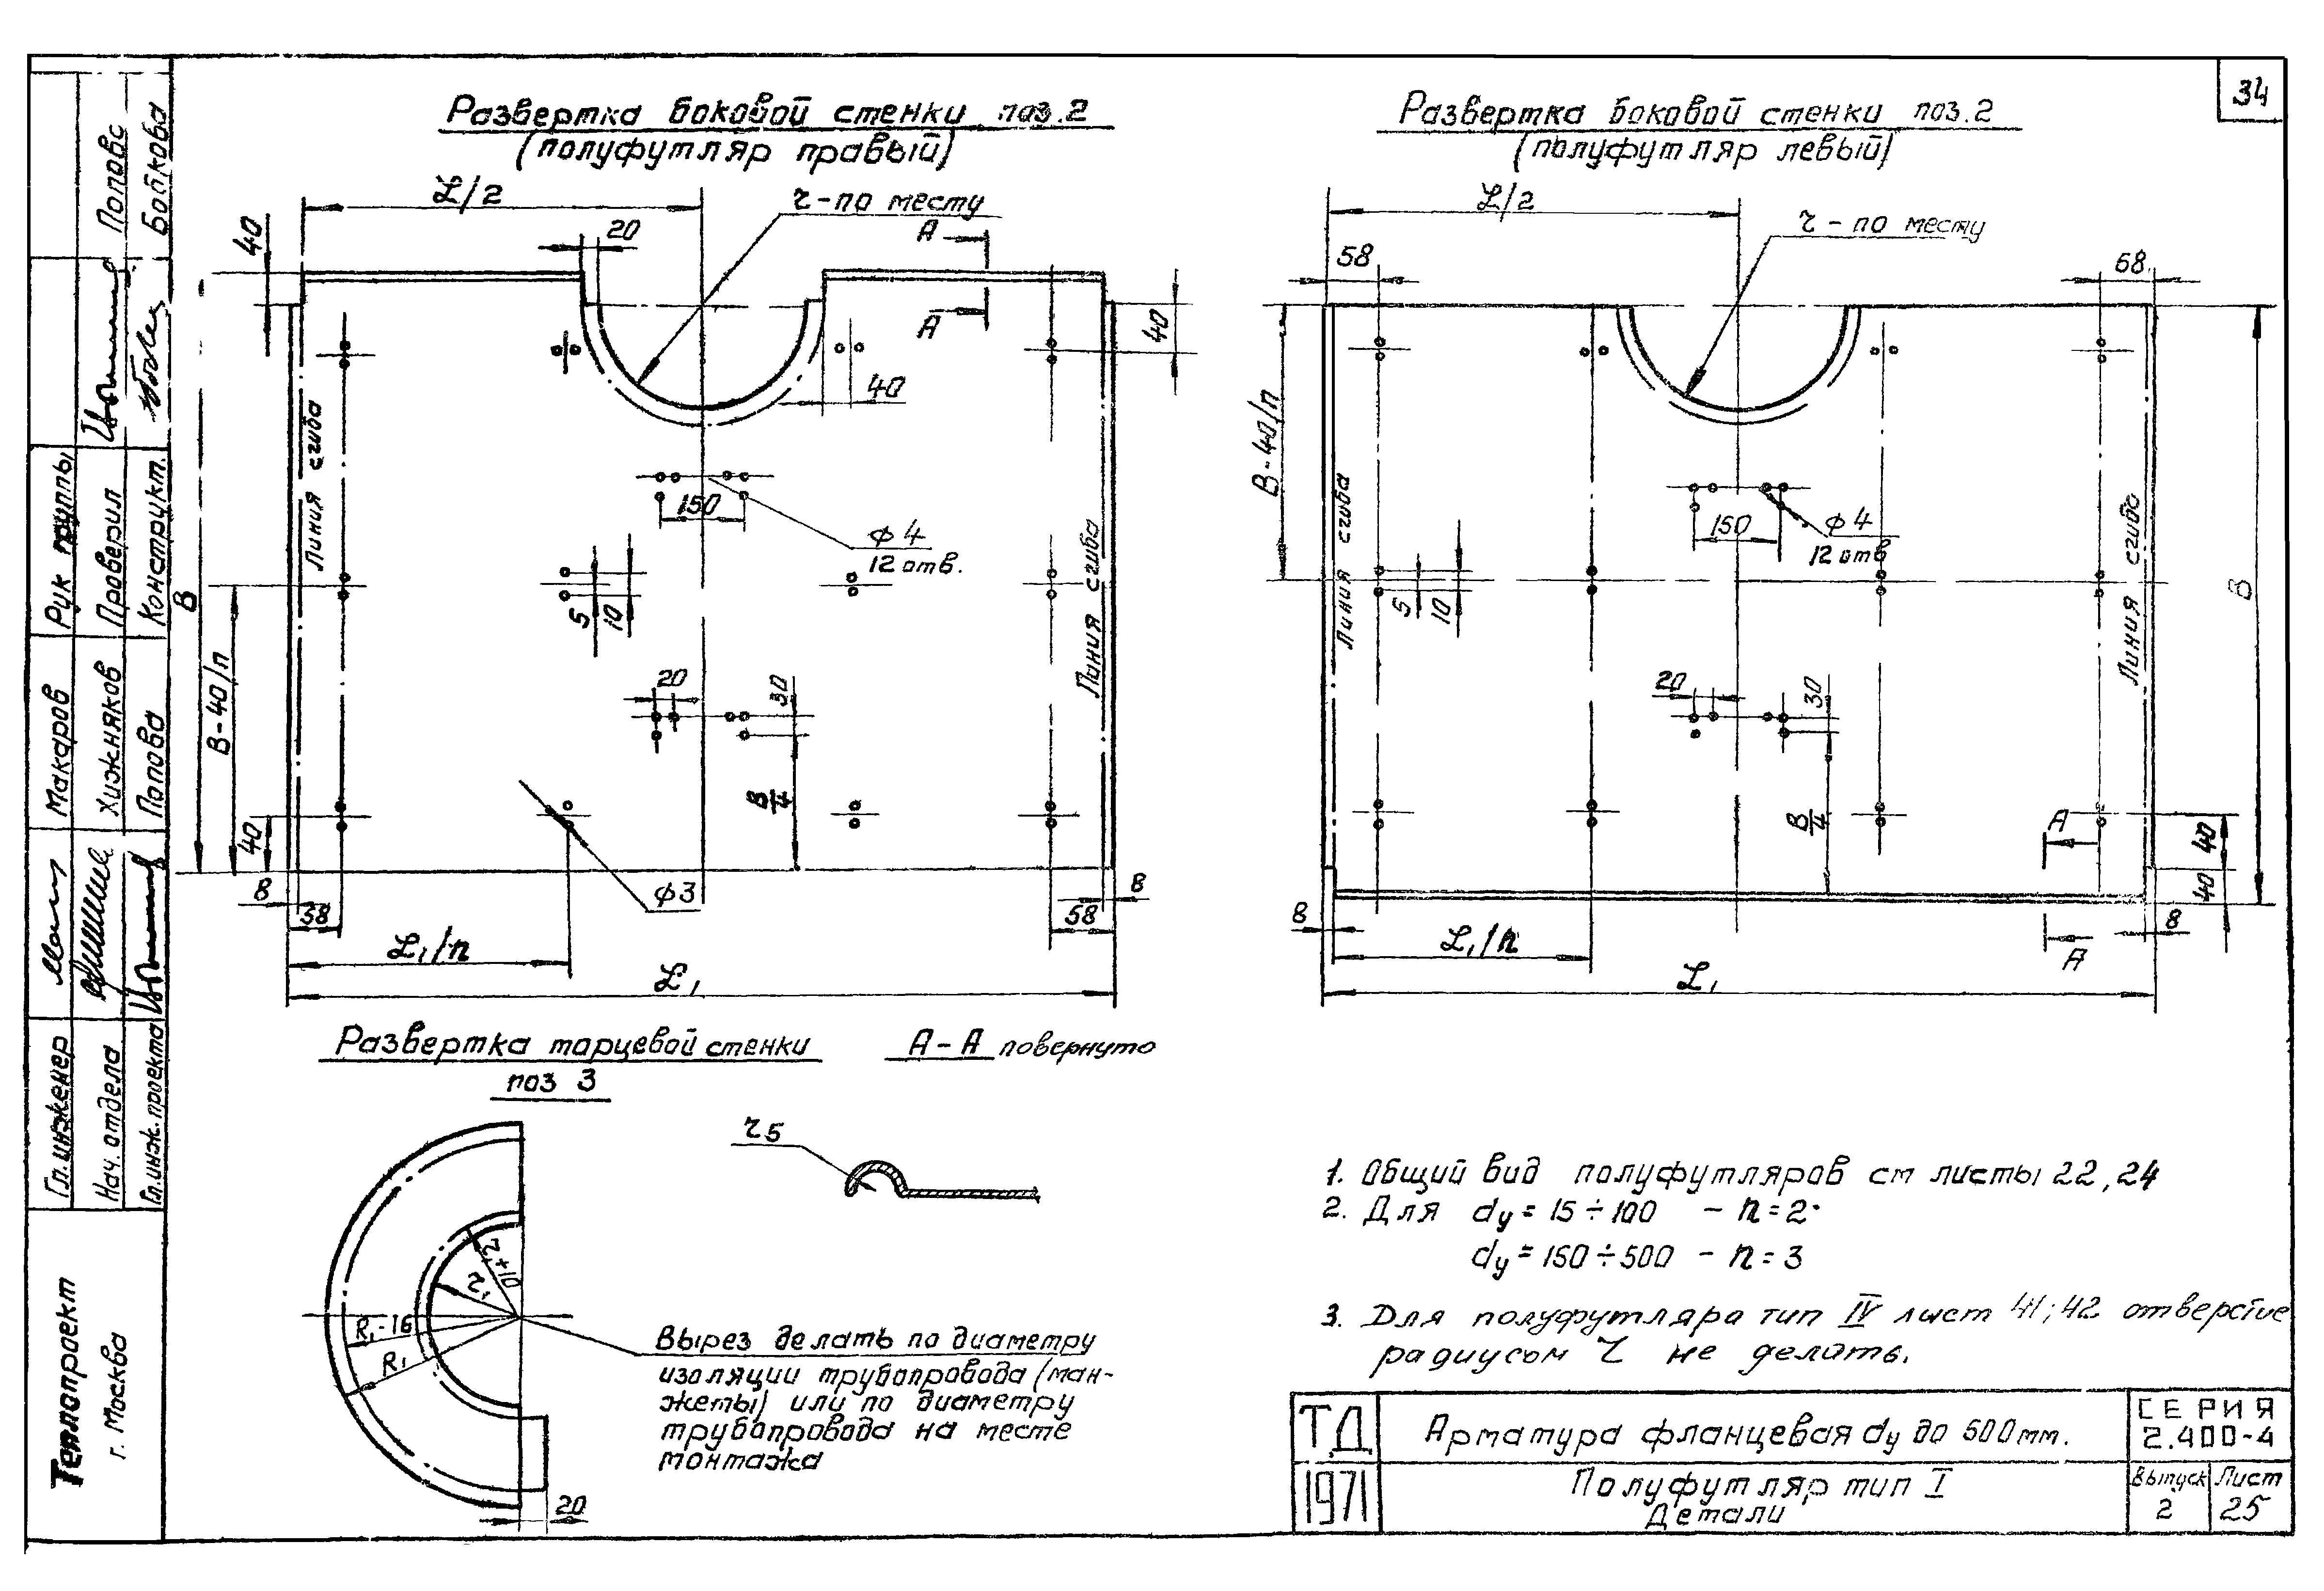 34
Развертка боковой стенки поз.2
(полуфутляр правый)
L/2
r-по месту
20
А
А
40
40
40
Линия сгиба
150
ф4
12 отв.
5
10
В
В-40/п
20
30
В/4
Линия сгиба
40
8
58
ф3
58
8
L₁/n
L₁
Развертка боковой стенки поз.2
(полуфутляр левый)
L/2
r-по месту
58
58
В-40/п
Линия сгиба
150
ф4
12 отв
5
10
20
30
В/4
Линия сгиба
В
А
40
40
8
8
L₁/n
А
L₁
Развертка торцевой стенки
поз 3
r₁+10
r₁
R₁-16
R₁
20
Вырез делать по диаметру
изоляции трубопровода (ман-
жеты) или по диаметру
трубопровода на месте
монтажа
А-А повернуто
r5
1. Общий вид полуфутляров см листы 22,24
2. Для dу = 15÷100 - n=2
dу = 150÷500 - n=3
3. Для полуфутляра тип IV лист 41;42 отверстие
радиусом r не делать.
ТД
1971
Арматура фланцевая dу до 500мм.
Полуфутляр тип I
Детали
СЕРИЯ
2.400-4
Выпуск
2
Лист
25
Рук группы
Проверил
Попова
Конструкт.
Бойкова
Гл.инженер
Макаров
Нач. отдела
Хижняков
Гл.инж.проекта
Попова
Теплопроект
г. Москва